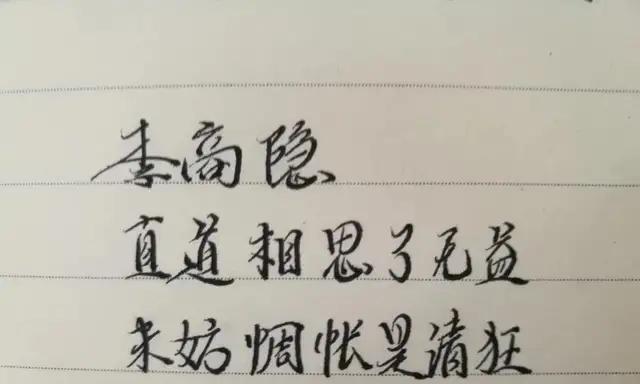 李商隐
直道相思了无益
未妨惆怅是清狂